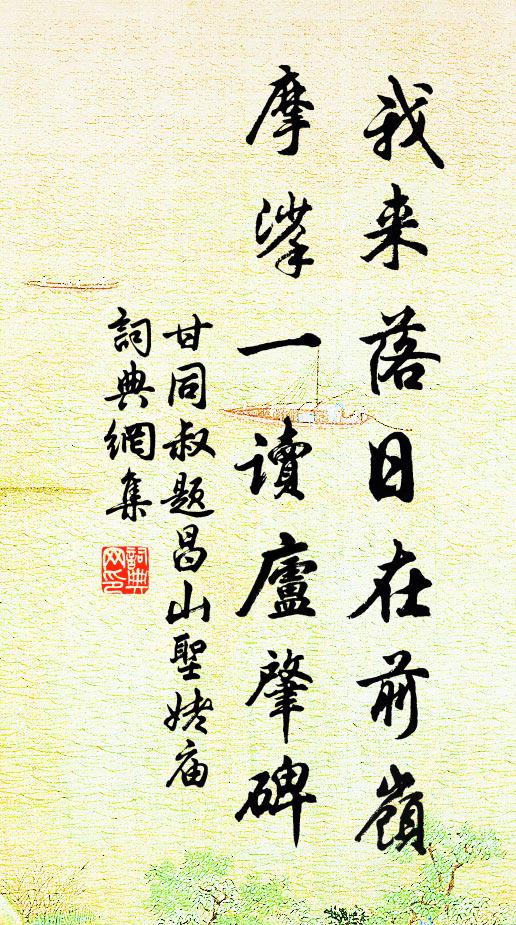 我来落日在前嶺
摩挲一讀廬肇碑
甘同叔题昌山聖姥庙
詞典網集
詞典
网印